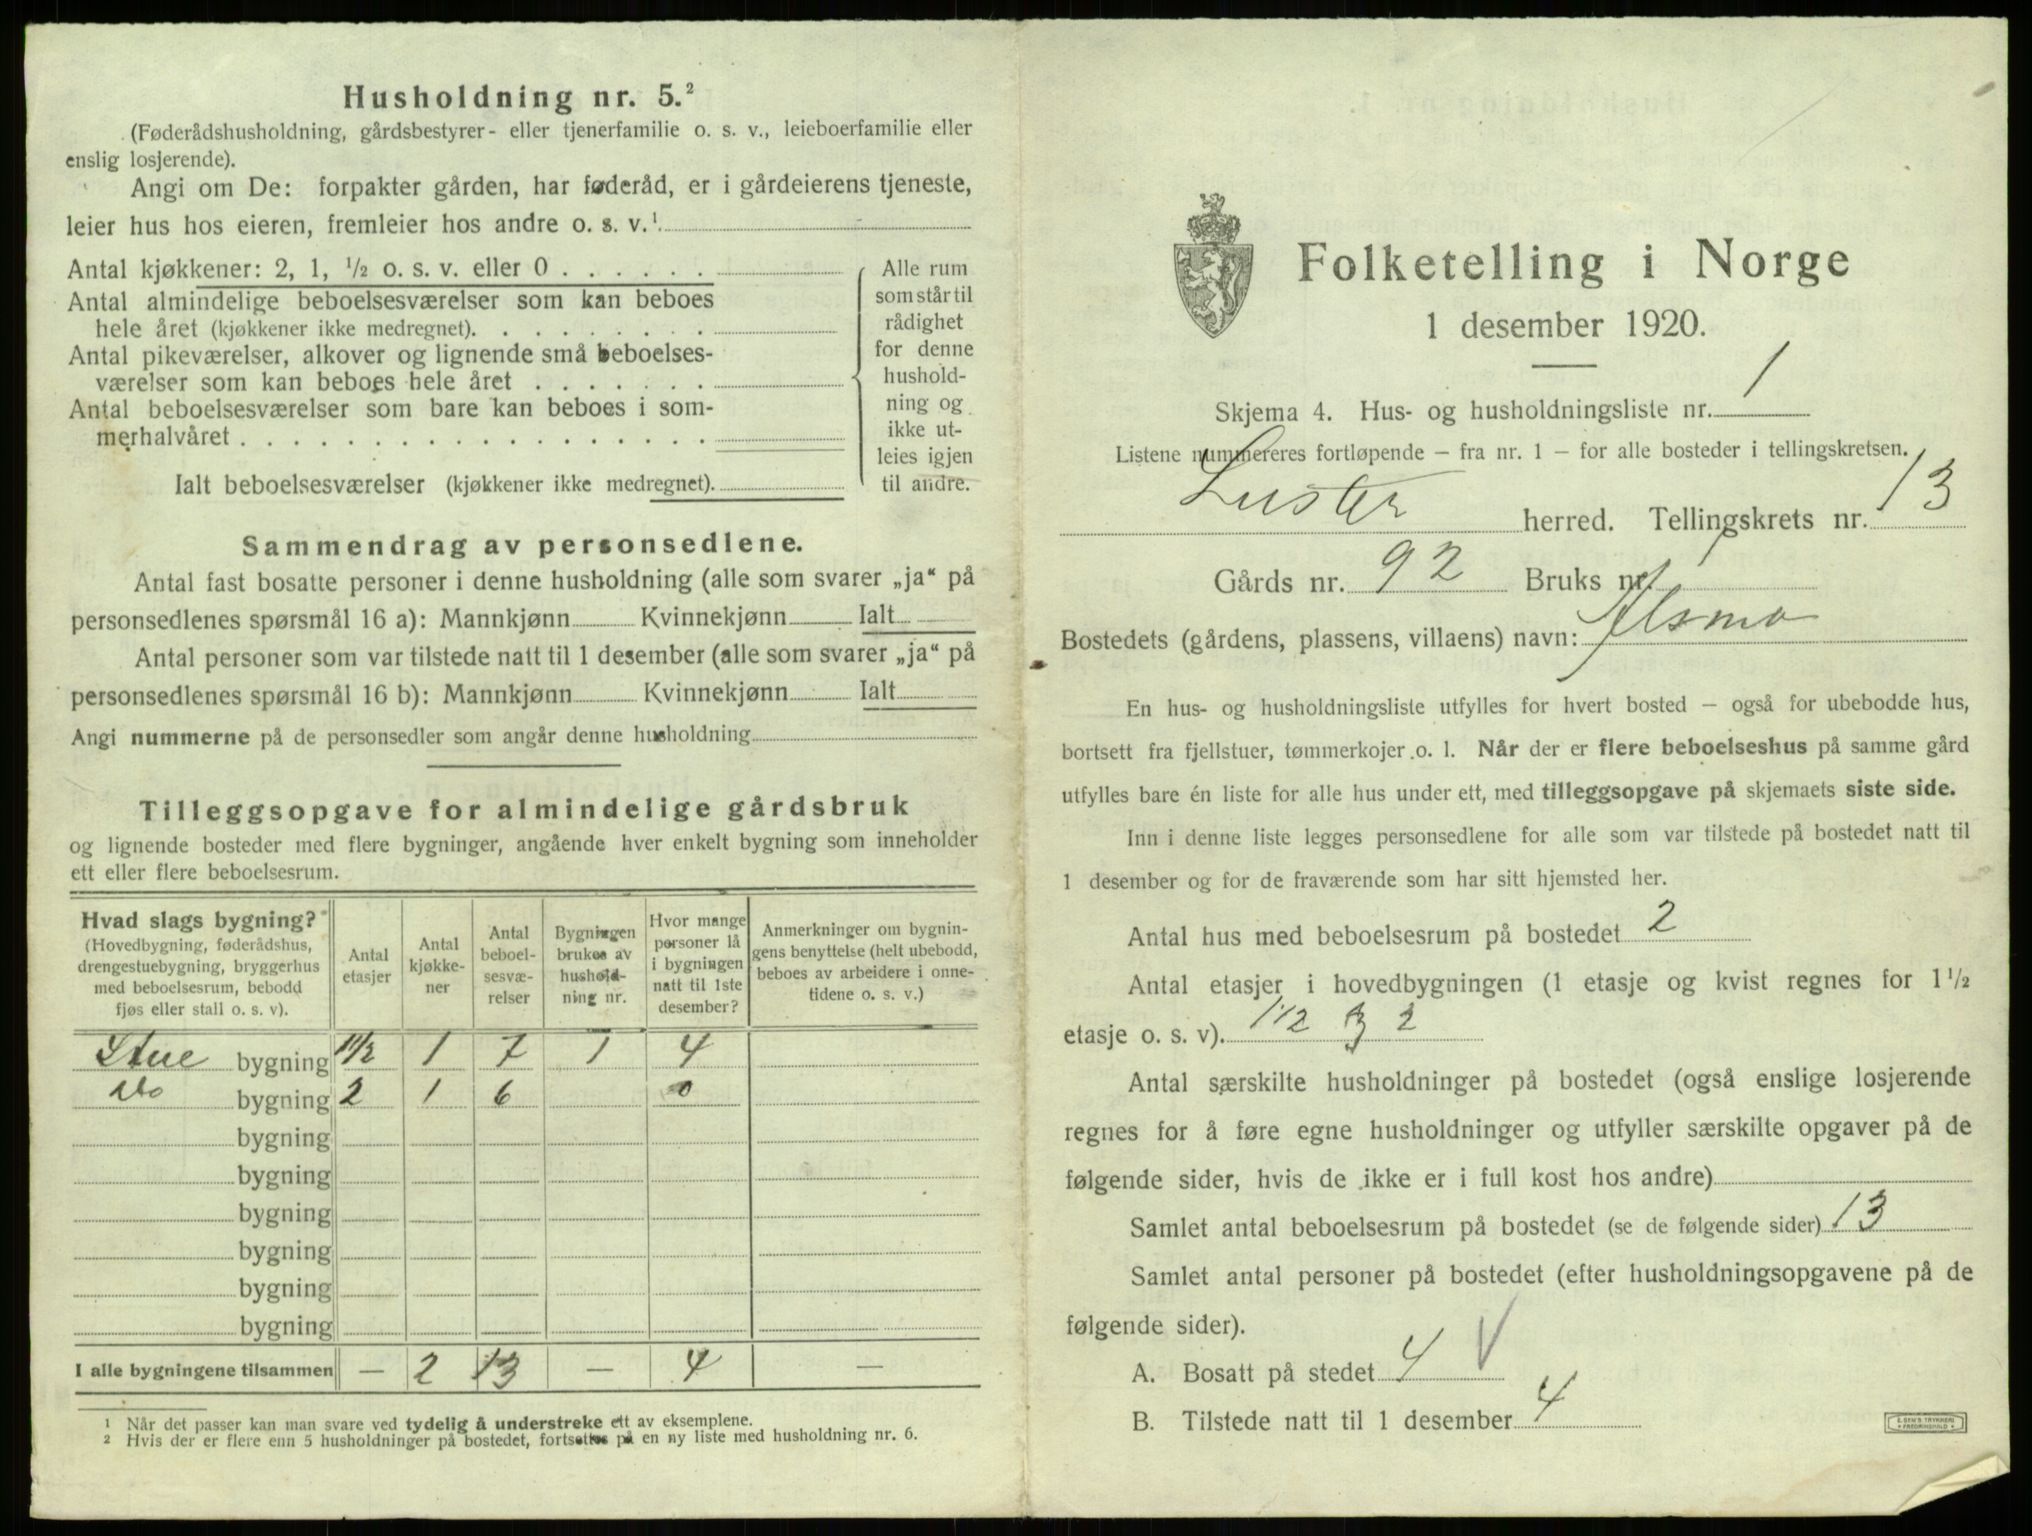 Husholdning nr. 5.²
(Føderådshusholdning, gårdsbestyrer- eller tjenerfamilie o. s. v., leieboerfamilie eller
enslig losjerende).
Angi om De: forpakter gården, har føderåd, er i gårdeierens tjeneste,
leier hus hos eieren, fremleier hos andre o. s. v.¹
Antal kjøkkener: 2, 1, ½ o. s. v. eller 0 . . . . . .
Antal almindelige beboelsesværelser som kan beboes
hele året (kjøkkener ikke medregnet). . . . . . . . .
Antal pikeværelser, alkover og lignende små beboelses-
værelser som kan beboes hele året . . . . . . .
Antal beboelsesværelser som bare kan beboes i som-
merhalvåret . . . . . . . . . . . . . . . . . .
Ialt beboelsesværelser (kjøkkener ikke medregnet).
Alle rum
som står til
rådighet
for denne
hushold-
ning og
ikke ut-
leies igjen
til andre.
Sammendrag av personsedlene.
Antal fast bosatte personer i denne husholdning (alle som svarer „ja“ på
personsedlenes spørsmål 16 a): Mannkjønn Kvinnekjønn Ialt
Antal personer som var tilstede natt til 1 desember (alle som svarer „ja“ på
personsedlenes spørsmål 16 b): Mannkjønn Kvinnekjønn Ialt
Angi nummerne på de personsedler som angår denne husholdning
Tilleggsopgave for almindelige gårdsbruk
og lignende bosteder med flere bygninger, angående hver enkelt bygning som inneholder
ett eller flere beboelsesrum.
Hvad slags bygning?
(Hovedbygning, føderådshus,
drengestuebygning, bryggerhus
med beboelsesrum, bebodd
fjøs eller stall o. s. v).
Antal
etasjer
Antal
kjøkke-
ner
Antal
beboel-
sesvæ-
relser
Bygningen
brukes av
hushold-
ning nr.
Hvor mange
personer lå
i bygningen
natt til 1ste
desember?
Anmerkninger om bygnin-
gens benyttelse (helt ubebodd,
beboes av arbeidere i onne-
tidene o. s. v.)
Stue bygning 1½ 1 7 1 4
do bygning 2 1 6 0
bygning
bygning
bygning
bygning
bygning
bygning
I alle bygningene tilsammen — 2 13 — 4 —
¹ Når det passer kan man svare ved tydelig å understreke ett av eksemplene.
² Hvis der er flere enn 5 husholdninger på bostedet, fortsettes på en ny liste med husholdning nr. 6.
Folketelling i Norge
1 desember 1920.
Skjema 4. Hus- og husholdningsliste nr. 1
Listene nummereres fortløpende – fra nr. 1 – for alle bosteder i tellingskretsen.
Luster herred. Tellingskrets nr. 13
Gårds nr. 92 Bruks nr. 1
Bostedets (gårdens, plassens, villaens) navn: Alsmo
En hus- og husholdningsliste utfylles for hvert bosted – også for ubebodde hus,
bortsett fra fjellstuer, tømmerkojer o. l. Når der er flere beboelseshus på samme gård
utfylles bare én liste for alle hus under ett, med tilleggsopgave på skjemaets siste side.
Inn i denne liste legges personsedlene for alle som var tilstede på bostedet natt til
1 desember og for de fraværende som har sitt hjemsted her.
Antal hus med beboelsesrum på bostedet 2
Antal etasjer i hovedbygningen (1 etasje og kvist regnes for 1½
etasje o. s. v). 1½ 2
Antal særskilte husholdninger på bostedet (også enslige losjerende
regnes for å føre egne husholdninger og utfyller særskilte opgaver på de
følgende sider, hvis de ikke er i full kost hos andre)
Samlet antal beboelsesrum på bostedet (se de følgende sider) 13
Samlet antal personer på bostedet (efter husholdningsopgavene på de
følgende sider).
A. Bosatt på stedet 4 V
B. Tilstede natt til 1 desember 4